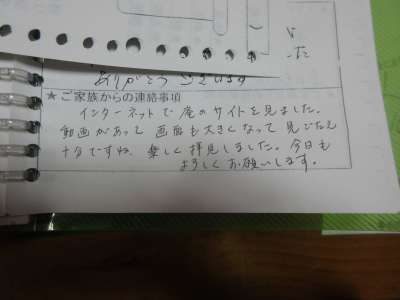 った
ありがとうございます
★ご家族からの連絡事項
インターネットで庵のサイトを見ました。
動画があって画面も大きくなって見ごたえ
十分ですね。楽しく拝見しました。今日も
よろしくお願いします。